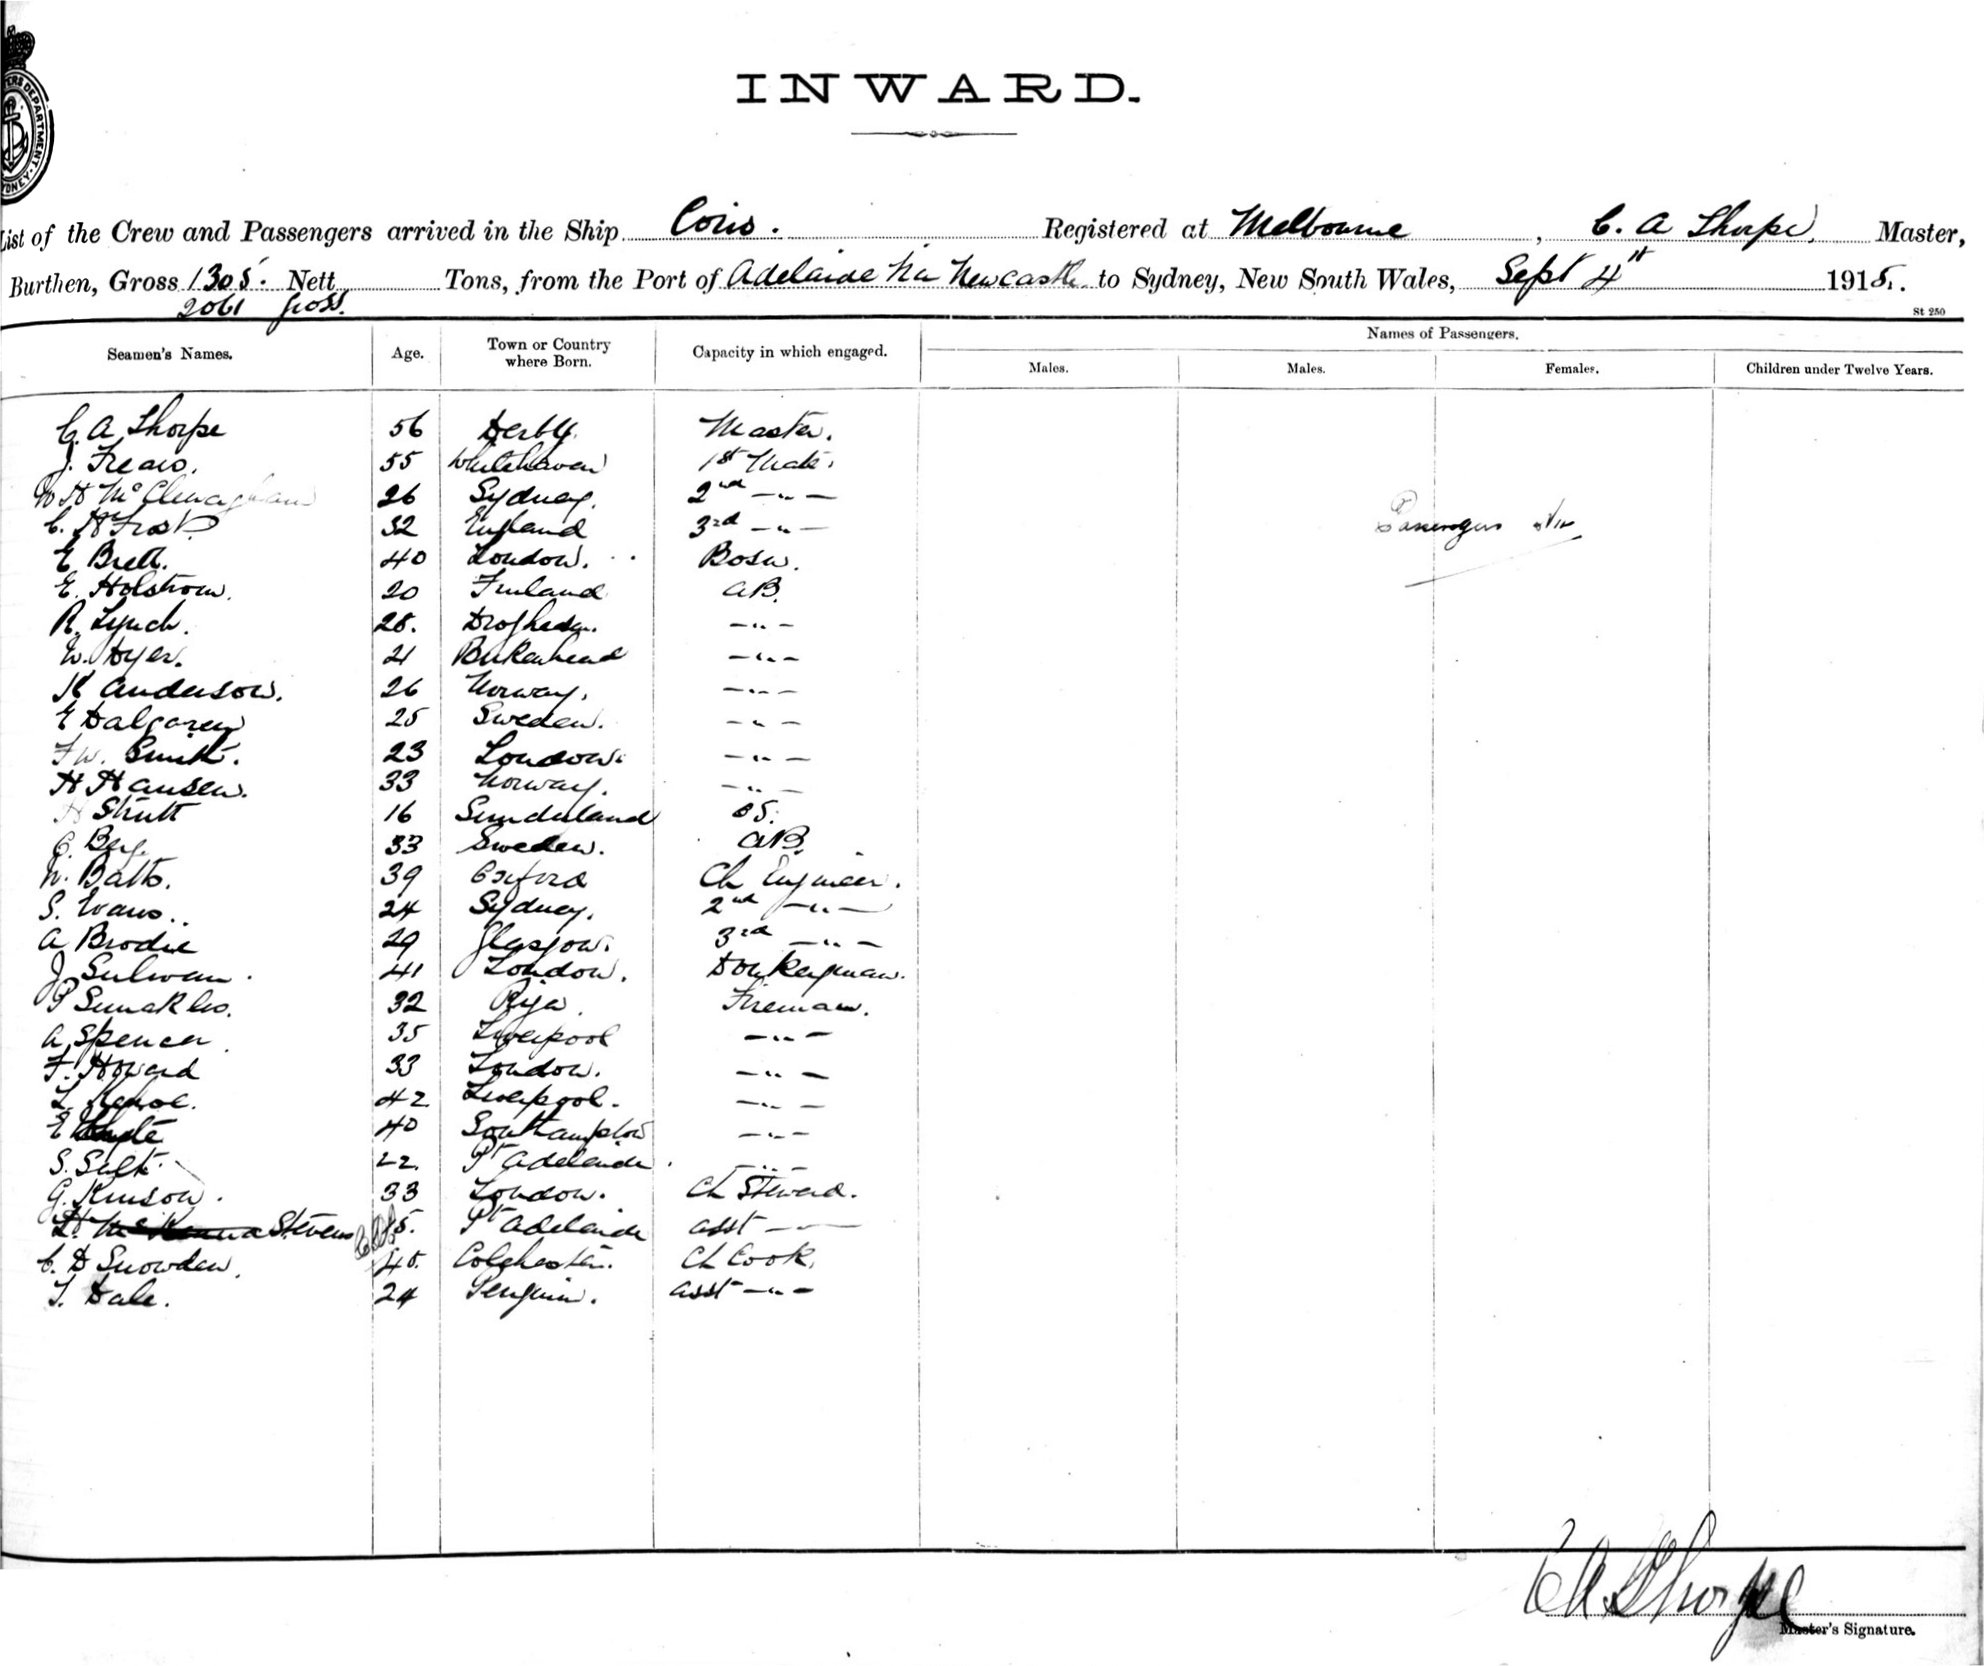 INWARD.
List of the Crew and Passengers arrived in the Ship Coris. Registered at Melbourne, C. A Thorpe, Master,
Burthen, Gross 1305. Nett Tons, from the Port of Adelaide via Newcastle to Sydney, New South Wales, Sept 4th 1915.
2061 gross.
St 250
Seamen's Names. Age. Town or Country where Born. Capacity in which engaged. Names of Passengers.
Males. Males. Females. Children under Twelve Years.
C. A Thorpe 56 Derby. Master.
J. Frears. 55 Whitehaven 1st Mate.
W H McClenaghan 26 Sydney. 2nd —"—
C. H Frost 32 England 3rd —"— Passengers Nil
E Brett. 40 London. Bosn.
E. Holstrom. 20 Finland AB.
R. Lynch. 28. Drogheda. —"—
W. Hyer. 21 Birkenhead —"—
K Anderson. 26 Norway. —"—
E Dalgaren 25 Sweden. —"—
F W. Smith. 23 London. —"—
H Hansen. 33 Norway. —"—
H Strutt 16 Sunderland OS.
C. Berg. 33 Sweden. AB.
W. Batts. 39 Oxford Ch Engineer.
S. Evans. 24 Sydney. 2nd —"—
A Brodie 29 Glasgow. 3rd —"—
J Sulivan. 41 London. Donkeyman.
P 32 Riga. Fireman.
A Spencer. 35 Liverpool —"—
F. Howard 33 London. —"—
L. Kehoe. 42 Liverpool. —"—
E 40 Southampton —"—
S. 22. Pt Adelaide. —"—
G. Kinson. 33 London. Ch Steward.
Stevens 5. Pt Adelaide asst —"—
C. D Snowden. 45. Colchester. Ch Cook.
T. Dale. 24 Penguin. asst —"—
C A Thorpe
Master's Signature.